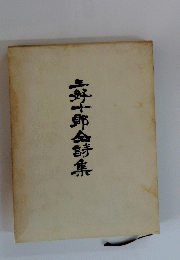 三好十郎全詩集